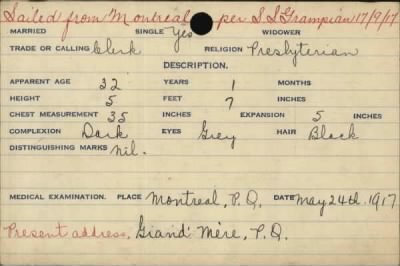 Sailed from Montreal per S.S. Grampian 17/9/17
MARRIED SINGLE Yes WIDOWER
TRADE OR CALLING Clerk RELIGION Presbyterian
DESCRIPTION.
APPARENT AGE 32 YEARS 1 MONTHS
HEIGHT 5 FEET 7 INCHES
CHEST MEASUREMENT 35 INCHES EXPANSION 5 INCHES
COMPLEXION Dark EYES Grey HAIR Black
DISTINGUISHING MARKS nil.
MEDICAL EXAMINATION. PLACE Montreal, P.Q. DATE May 24th. 1917
Present address, Grand' Mère, P.Q.